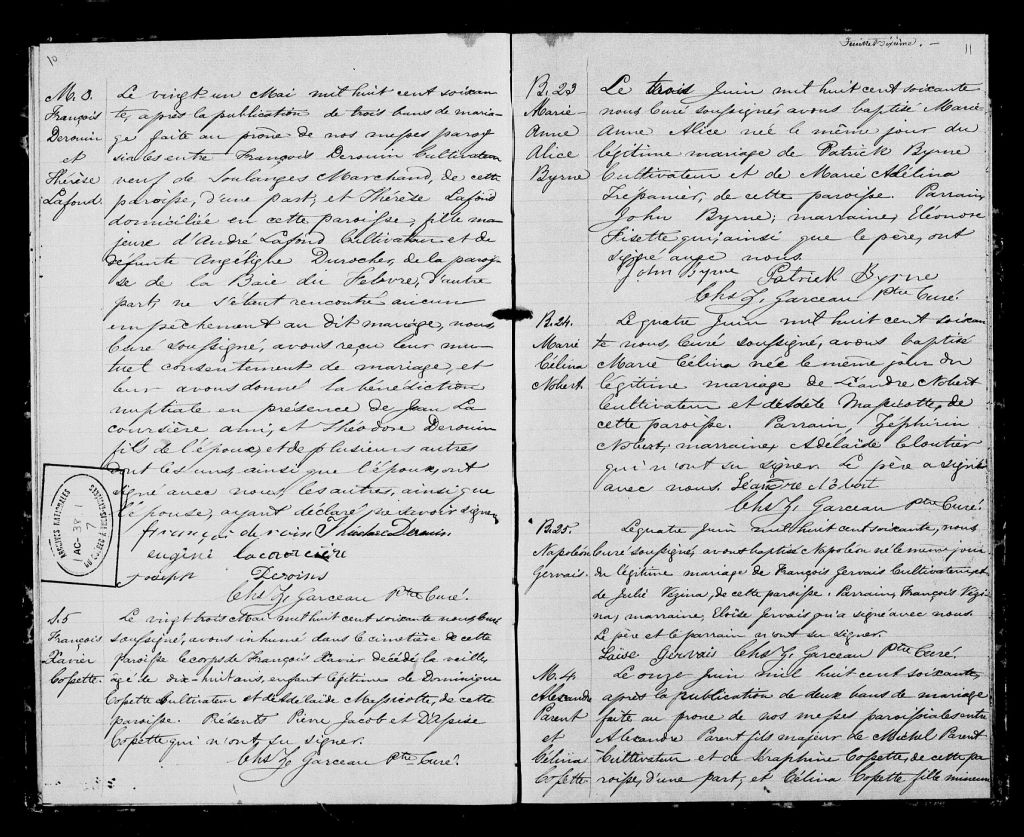 10
M. 3.
François
Derouin
et
Thérèse
Lafond.
Le vingt un Mai mil huit cent soixan
te, après la publication de trois bans de maria
ge faite au prone de nos messes parois
siales entre François Derouin Cultivateur
veuf de Soulanges Marchand, de cette
paroisse, d'une part, et Thérèse Lafond
domiciliée en cette paroisse, fille ma
jeure d'André Lafond Cultivateur et de
défunte Angélique Durocher, de la parois
se de la Baie du Febvre, d'autre
part, ne s'étant rencontré aucun
empêchement au dit mariage, nous
Curé soussigné, avons reçu leur mu
tuel consentement de mariage, et
leur avons donné la bénédiction
nuptiale en présence de Jean La
coursière ami, et Théodore Derouin
fils de l'époux, et de plusieurs autres
dont les uns, ainsi que l'époux, ont
signé avec nous, les autres, ainsi que
l'épouse, ayant déclaré ne savoir signer.
françois derouin Théodore Derouin
eugène lacourcière
Joseph Deroins
Chs Z. Garceau Ptre Curé.
ARCHIVES NATIONALES
1 AC-38-1
7
DU QUÉBEC À TROIS-RIVIÈRES
S. 5
François
Xavier
Cossette.
Le vingt trois Mai mil huit cent soixante nous Curé
soussigné, avons inhumé dans le cimetière de cette
paroisse le corps de François Xavier décédé la veille,
âgé de dix-huit ans, enfant légitime de Dominique
Cossette Cultivateur et de Adelaïde Massicotte, de cette
paroisse. Présents Pierre Jacob et
Cossette qui n'ont su signer.
Chs Z. Garceau Ptre Curé.
Feuillet Sixième. 11
B. 23
Marie-
Anne
Alice
Byrne
Le trois Juin mil huit cent soixante
nous Curé soussigné avons baptisé Marie
Anne Alice née le même jour du
légitime mariage de Patrick Byrne
Cultivateur et de Marie Adélina
Trépanier, de cette paroisse. Parrain,
John Byrne; marraine, Eléonore
Fisette qui, ainsi que le père, ont
signé avec nous.
John Byrne Patrick Byrne
Chs Z. Garceau Ptre Curé.
B. 24.
Marie
Célina
Nobert
Le quatre Juin mil huit cent soixan
te nous Curé soussigné, avons baptisé
Marie Célina née le même jour du
légitime mariage de Léandre Nobert
Cultivateur et Massicotte, de
cette paroisse. Parrain, Zéphirin
Nobert, marraine, Adelaïde Cloutier
qui n'ont su signer. Le père a signé
avec nous. Léandre Nobert
Chs Z. Garceau Ptre Curé.
B. 25.
Napoléon
Gervais.
Le quatre Juin mil huit cent soixante, nous
Curé soussigné, avons baptisé Napoléon né le même jour
du légitime mariage de François Gervais Cultivateur et
de Julie Vézina, de cette paroisse. Parrain, François Vézi
na, marraine, Eloïse Gervais qui a signé avec nous.
Le père et le parrain n'ont su signer.
Loïse Gervais Chs Z. Garceau Ptre Curé.
M. 4.
Alexandre
Parent
et
Célina
Cossette
Le onze Juin mil huit cent soixante,
après la publication de deux bans de mariage
faite au prone de nos messes paroissiales entre
Alexandre Parent fils majeur de Michel Parent
Cultivateur et de Séraphine Cossette, de cette pa
roisse, d'une part, et Célina Cossette fille mineure